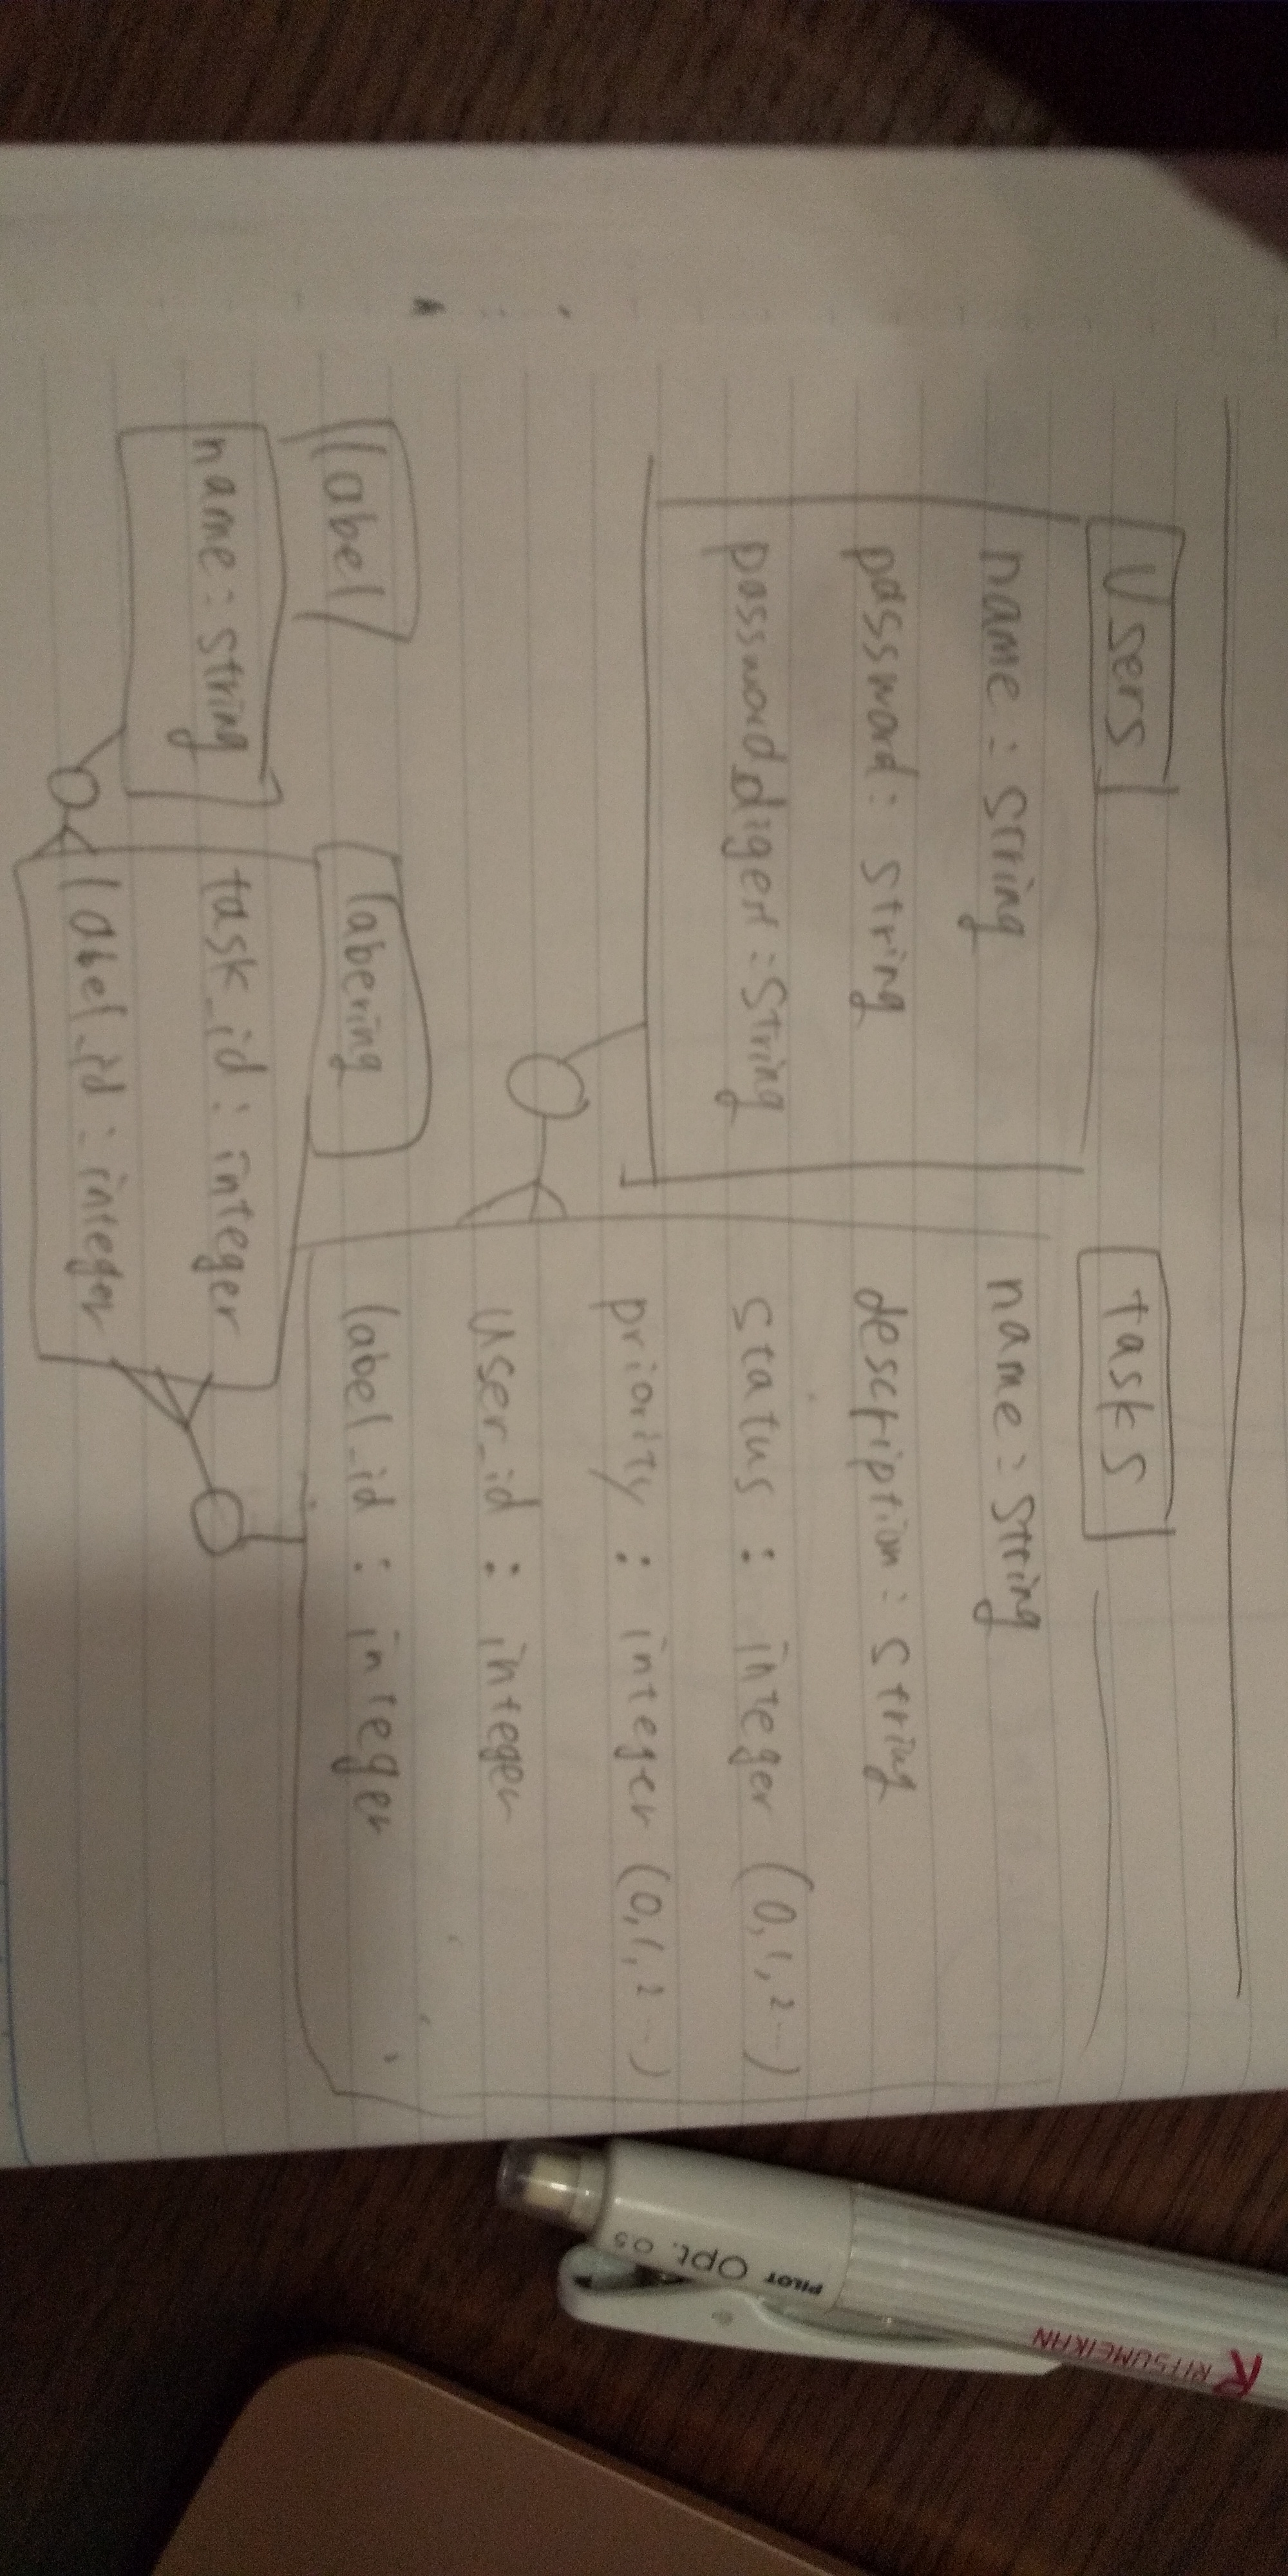 Users
name : string
password : string
password_digest : string
tasks
name : string
description : string
status : integer (0, 1, 2 ...)
priority : integer (0, 1, 2 ...)
user_id : integer
label_id : integer
label
name : string
labering
task_id : integer
label_id : integer
PILOT Opt. 0.5
R RITSUMEIKAN